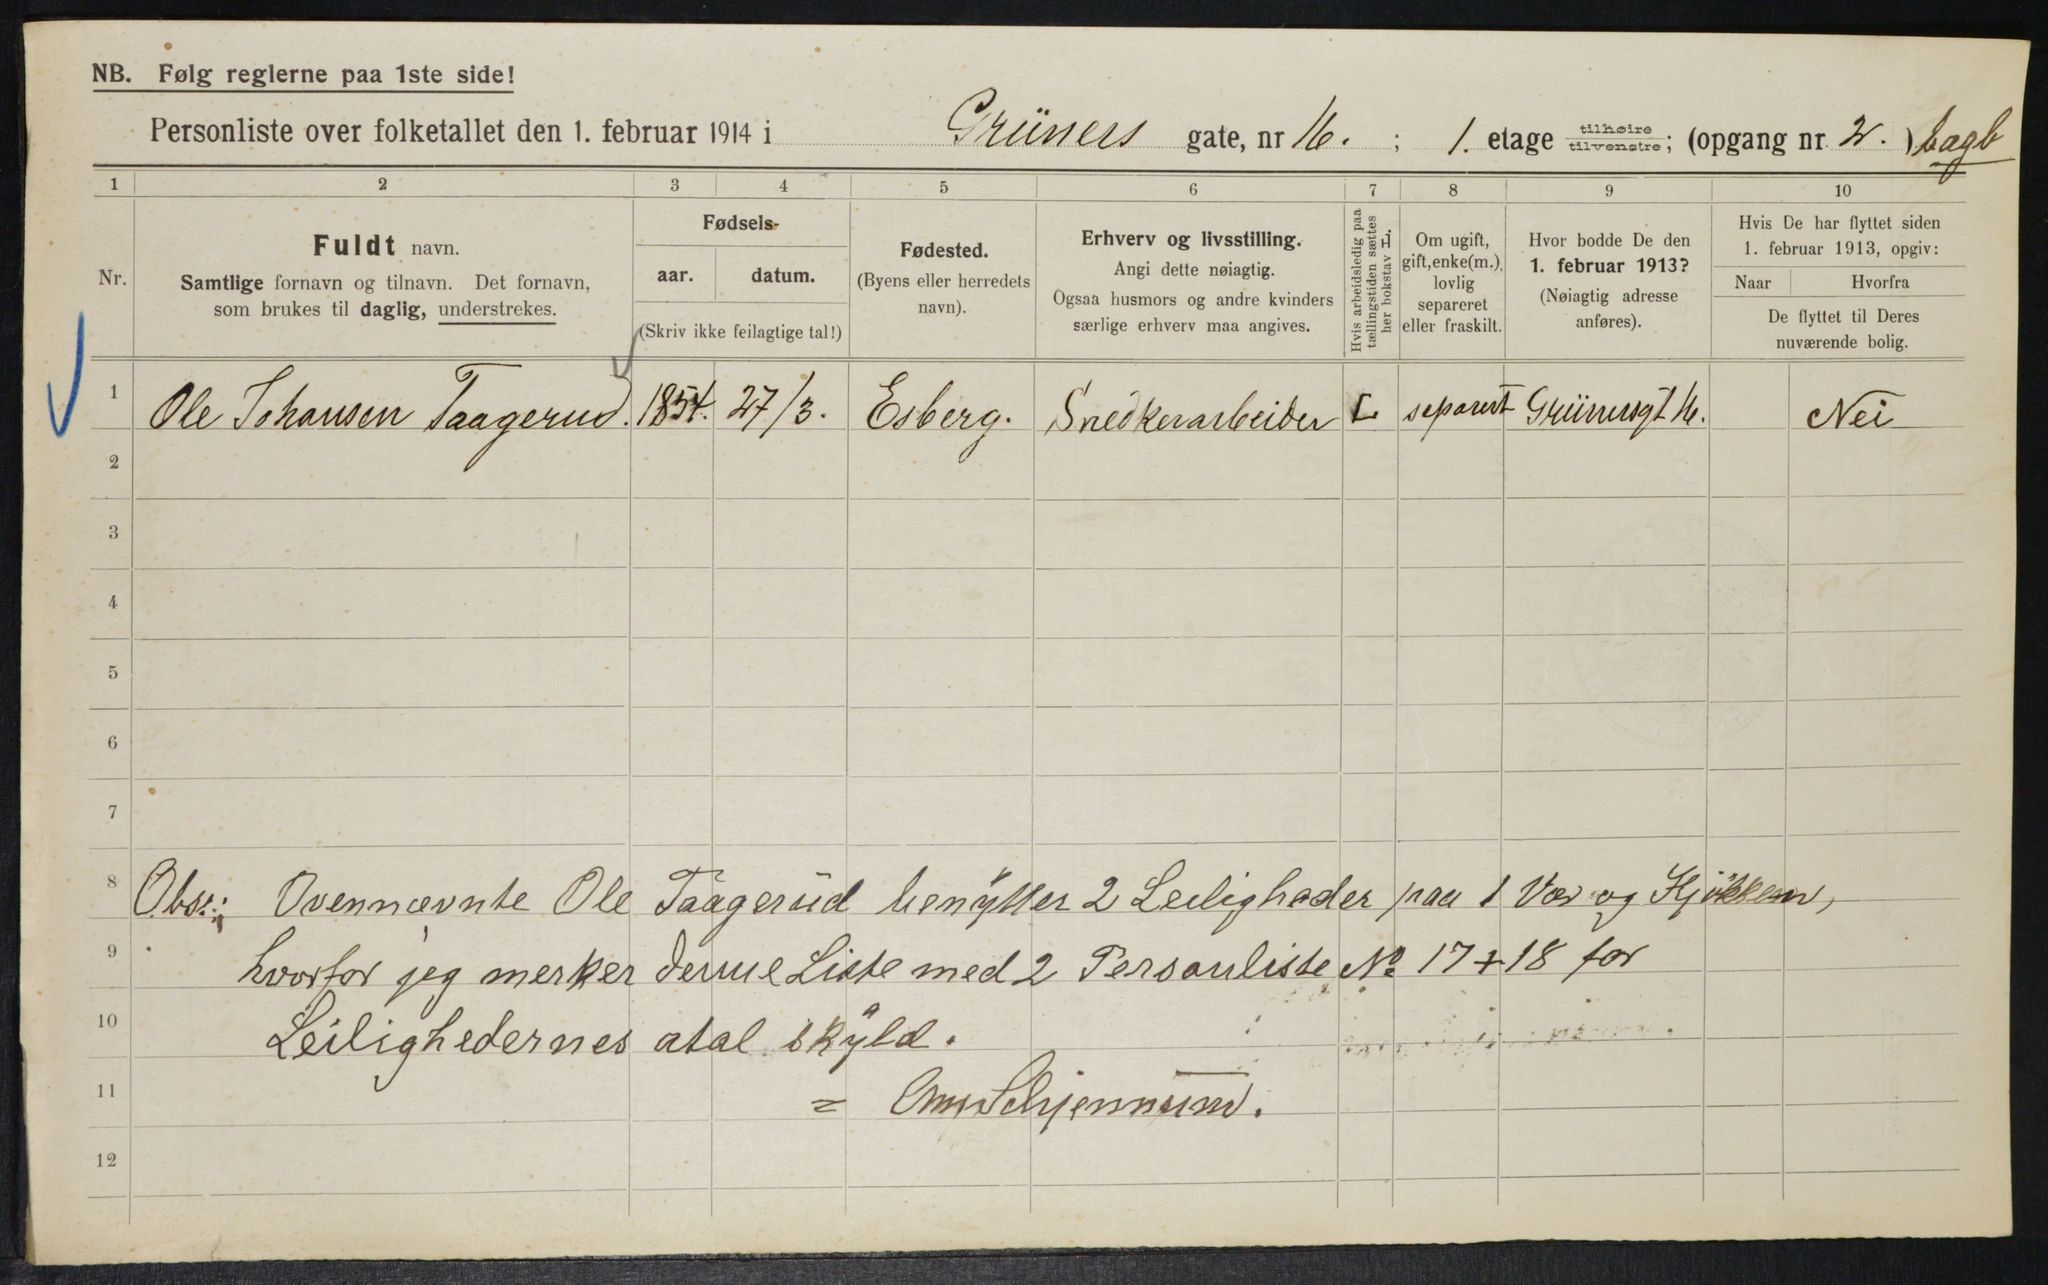 NB. Følg reglerne paa 1ste side!
Personliste over folketallet den 1. februar 1914 i Grüners gate, nr 16. ; 1. etage tilhøire tilvenstre; (opgang nr 2. ) bagb
1 2 3 4 5 6 7 8 9 10
Nr.
Fuldt navn.
Samtlige fornavn og tilnavn. Det fornavn,
som brukes til daglig, understrekes.
Fødsels-
aar. datum.
(Skriv ikke feilagtige tal!)
Fødested.
(Byens eller herredets
navn).
Erhverv og livsstilling.
Angi dette nøiagtig.
Ogsaa husmors og andre kvinders
særlige erhverv maa angives.
Hvis arbeidsledig paa
tællingstiden sættes
her bokstav L.
Om ugift,
gift, enke(m.),
lovlig
separeret
eller fraskilt.
Hvor bodde De den
1. februar 1913?
(Nøiagtig adresse
anføres).
Hvis De har flyttet siden
1. februar 1913, opgiv:
Naar Hvorfra
De flyttet til Deres
nuværende bolig.
1 Ole Johansen Taagerud. 1854. 27/3. Esberg. Snedkerarbeider L separert Grünersgt 16. Nei
2
3
4
5
6
7
8 Obs: Ovennævnte Ole Taagerud benytter 2 Leiligheder paa 1 Vær og Kjøkken,
9 hvorfor jeg merker denne Liste med 2 Personliste No 17 + 18 for
10 Leilighedernes atal skyld.
11 =
12